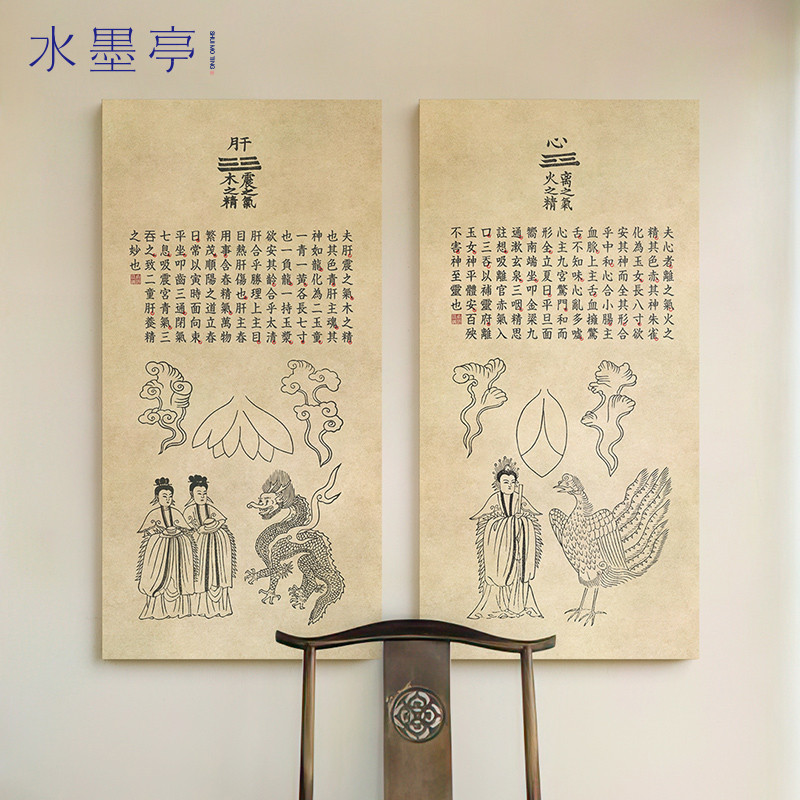 水墨亭
SHUI MO TING
肝
震之氣
木之精
夫肝震之氣木之精
也其色青肝主魂其
神如龍化為二玉童
一青一黃各長七寸
也一負龍一持玉漿
欲安其齡合乎太清
肝合乎勝理上主目
目熱肝傷也肝主春
用事合春精氣萬物
繁茂順陽之道立春
日常以寅時面向東
平坐叩齒三通閉氣
七息吸震宮青氣三
吞之致二童肝養精
之妙也
心
离之氣
火之精
夫心者離之氣火之
精其色赤其神朱雀
化為玉女長八寸欲
安其神而全其形合
乎中和心合小腸主
血脈上主舌血擁驚
舌不知味心亂多噓
心主九宮驚門和而
形全立夏日平旦面
嚮南端坐叩金梁九
通漱玄泉三咽精思
註想吸離宮赤氣入
口三吞以補靈府離
玉女神平體安百殃
不害神至靈也